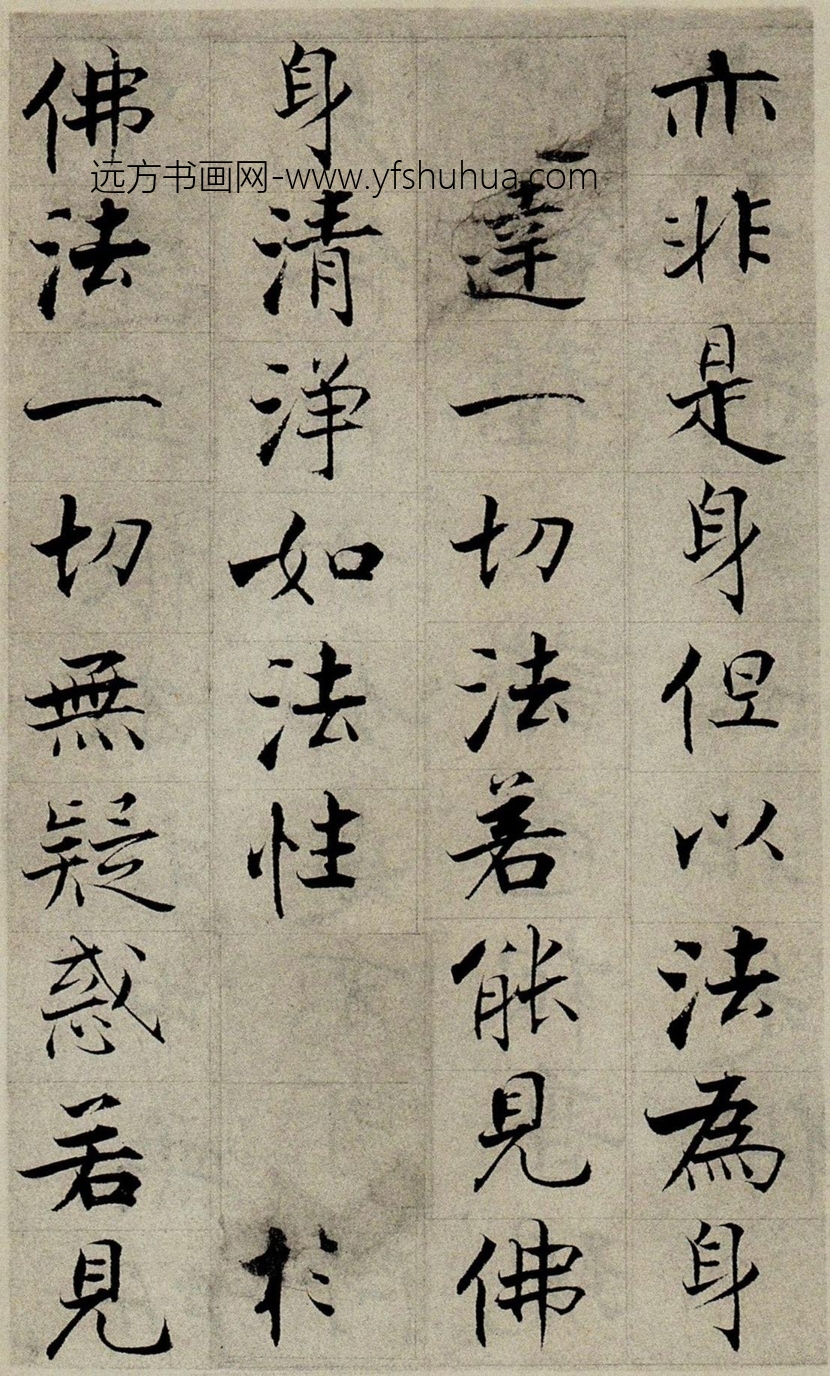 亦非是身但以法為身
達一切法若能見佛
身清淨如法性
於
佛法一切無疑惑若見
远方书画网-www.yfshuhua.com